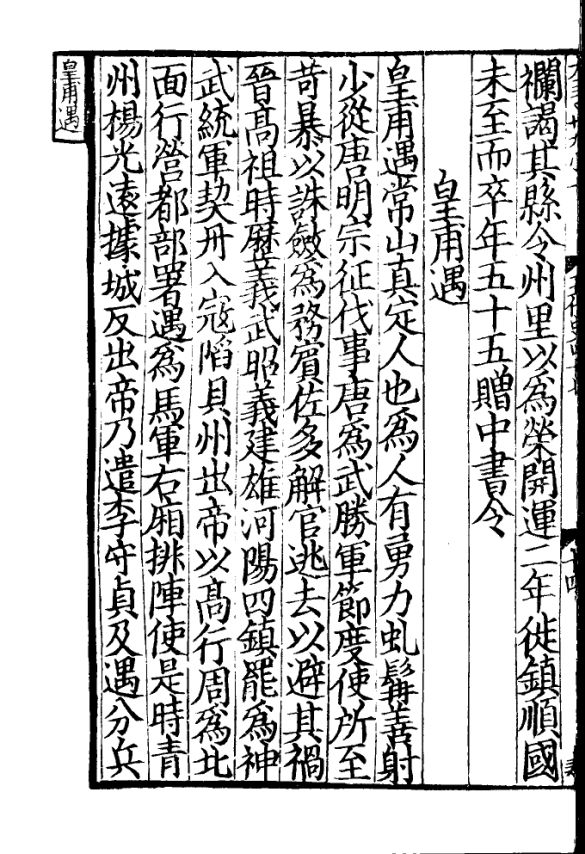 襴謁其縣令州里以爲榮開運二年徙鎮順國
未至而卒年五十五贈中書令
皇甫遇
皇甫遇常山真定人也爲人有勇力虬髯善射
少從唐明宗征伐事唐爲武勝軍節度使所至
苛暴以誅斂爲務賓佐多解官逃去以避其禍
晉高祖時歷義武昭義建雄河陽四鎮罷爲神
武統軍契丹入寇陷貝州出帝以高行周爲北
面行營都部署遇爲馬軍右廂排陣使是時青
州楊光遠據城反出帝乃遣李守貞及遇分兵
皇甫遇